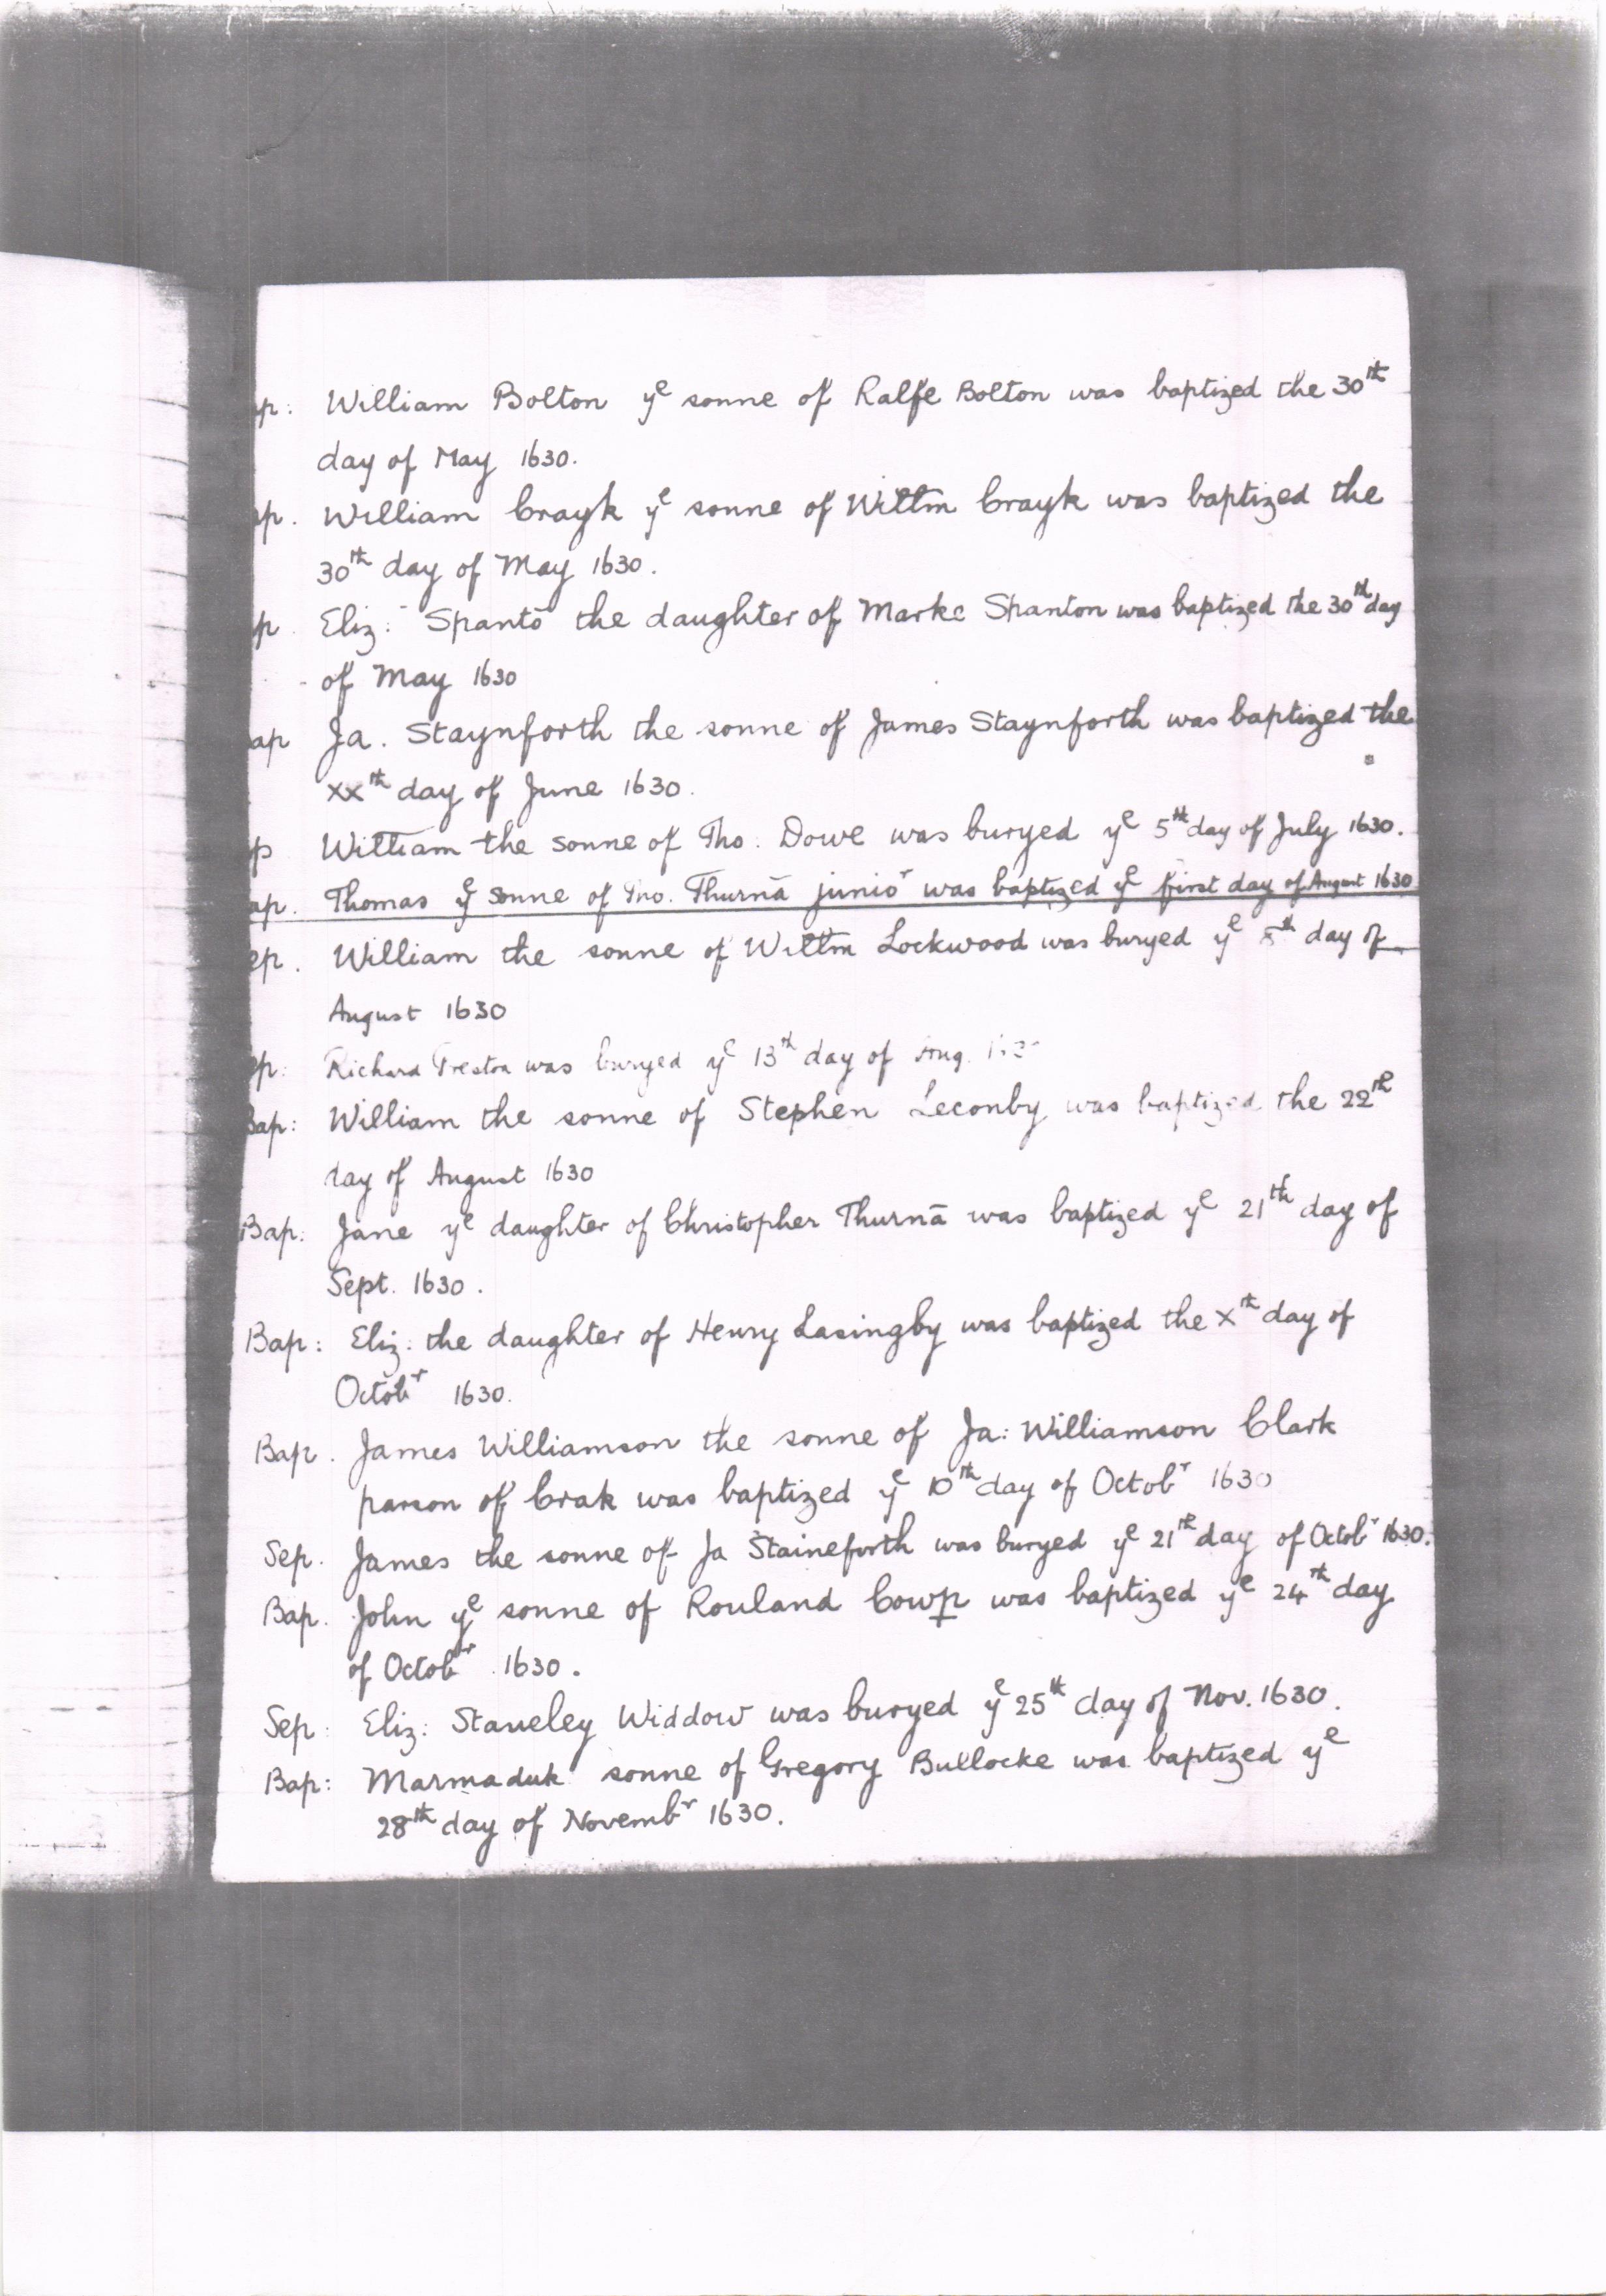 ap: William Bolton yᵉ sonne of Ralfe Bolton was baptized the 30ᵗʰ
day of May 1630.
ap. William Crayk yᵉ sonne of Willm Crayk was baptized the
30ᵗʰ day of May 1630.
ap Eliz: Spantō the daughter of Marke Spanton was baptized the 30ᵗʰ day
of May 1630
ap Ja. Staynforth the sonne of James Staynforth was baptized the
xxᵗʰ day of June 1630.
p William the sonne of Tho: Dowe was buryed yᵉ 5ᵗʰ day of July 1630.
ap. Thomas yᵉ sonne of Tho. Thurnā junioʳ was baptized yᵉ first day of August 1630
ep. William the sonne of Willm Lockwood was buryed yᵉ day of
August 1630
ep: Richard Preston was buryed yᵉ 13ᵗʰ day of Aug.
Bap: William the sonne of Stephen Leconby was baptized the 22ᵗʰ
day of August 1630
Bap: Jane yᵉ daughter of Christopher Thurnā was baptized yᵉ 21ᵗʰ day of
Sept. 1630.
Bap: Eliz: the daughter of Henry Lasingby was baptized the xᵗʰ day of
Octobʳ 1630.
Bap. James Williamson the sonne of Ja: Williamson Clark
parson of Crak was baptized yᵉ 10ᵗʰ day of Octobʳ 1630
Sep. James the sonne of Ja Staineforth was buryed yᵉ 21ᵗʰ day of Octobʳ 1630.
Bap. John yᵉ sonne of Rouland Cowꝑ was baptized yᵉ 24ᵗʰ day
of Octobʳ 1630.
Sep: Eliz: Staveley Widdow was buryed yᵉ 25ᵗʰ day of Nov. 1630.
Bap: Marmaduk sonne of Gregory Bullocke was baptized yᵉ
28ᵗʰ day of Novembʳ 1630.